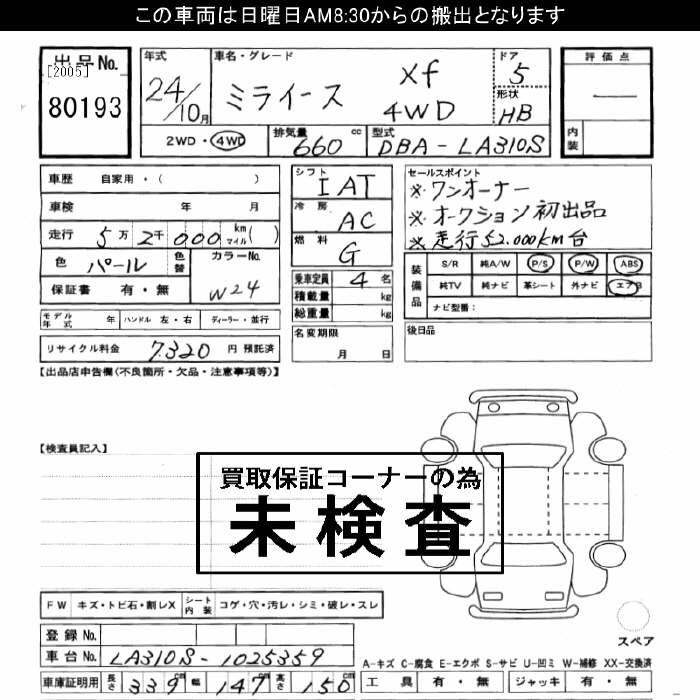 この車両は日曜日AM8:30からの搬出となります
出品No.
[2005]
80193
年式
24/10月
車名・グレード
ミライース
Xf
4WD
ドア
5
形状
HB
2WD・4WD
排気量
660 cc
型式
DBA-LA310S
評価点
内装
車歴 自家用・( )
車検 年 月
走行 5万 2千 000 km マイル ( )
色 パール 色替
カラーNo.
W24
保証書 有・無
モデル年式 年 ハンドル 左・右 ディーラー・並行
リサイクル料金 7,320 円 預託済
シフト
IAT
冷房
AC
燃料
G
乗車定員 4 名
積載量 kg
総重量 kg
名変期限
月 日
セールスポイント
※ワンオーナー
※オークション初出品
※走行52.000KM台
装備品
S/R 純A/W P/S P/W ABS
純TV 純ナビ 革シート 外ナビ エアB
ナビ型番:
後日品
【出品店申告欄(不良箇所・欠品・注意事項等)】
【検査員記入】
買取保証コーナーの為
未検査
FW キズ・トビ石・割レX シート内装 コゲ・穴・汚レ・シミ・破レ・スレ
登録No.
車台No. LA310S-1025359
車庫証明用 長さ 339cm 幅 147cm 高さ 150cm
スペア
A-キズ C-腐食 E-エクボ S-サビ U-凹ミ W-補修 XX-交換済
工具 有・無 ジャッキ 有・無